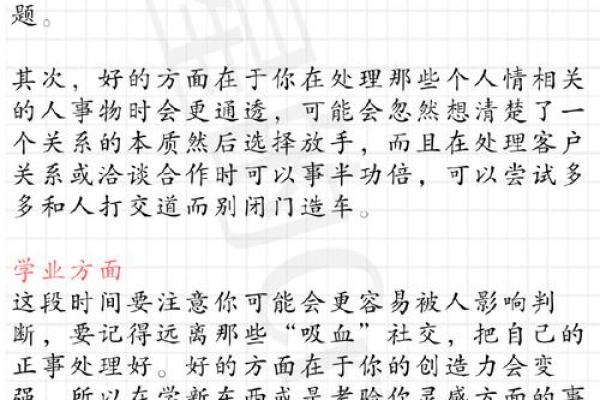 题。
其次，好的方面在于你在处理那些个人情相关
的人事物时会更通透，可能会忽然想清楚了一
个关系的本质然后选择放手，而且在处理客户
关系或洽谈合作时可以事半功倍，可以尝试多
多和人打交道而别闭门造车。
学业方面
这段时间要注意你可能会更容易被人影响判
断，要记得远离那些“吸血”社交，把自己的
正事处理好。好的方面在于你的创造力会变
强，所以在学新东西或是考验你灵感方面的事